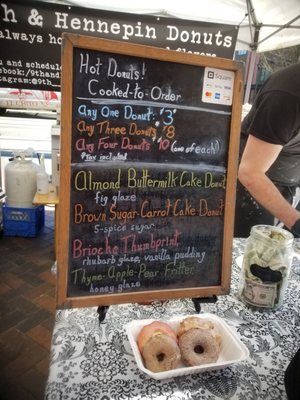 h & Hennepin Donuts
Hot Donuts!
Cooked-to-Order
Square
Any One Donut: $3
Any Three Donuts: $8
Any Four Donuts: $10 (one of each!)
*Tax included
Almond Buttermilk Cake Donut
fig glaze
Brown Sugar-Carrot Cake Donut
5-spice sugar
Brioche Thumbprint
rhubarb glaze, vanilla pudding
Thyme-Apple-Pear Fritter
honey glaze